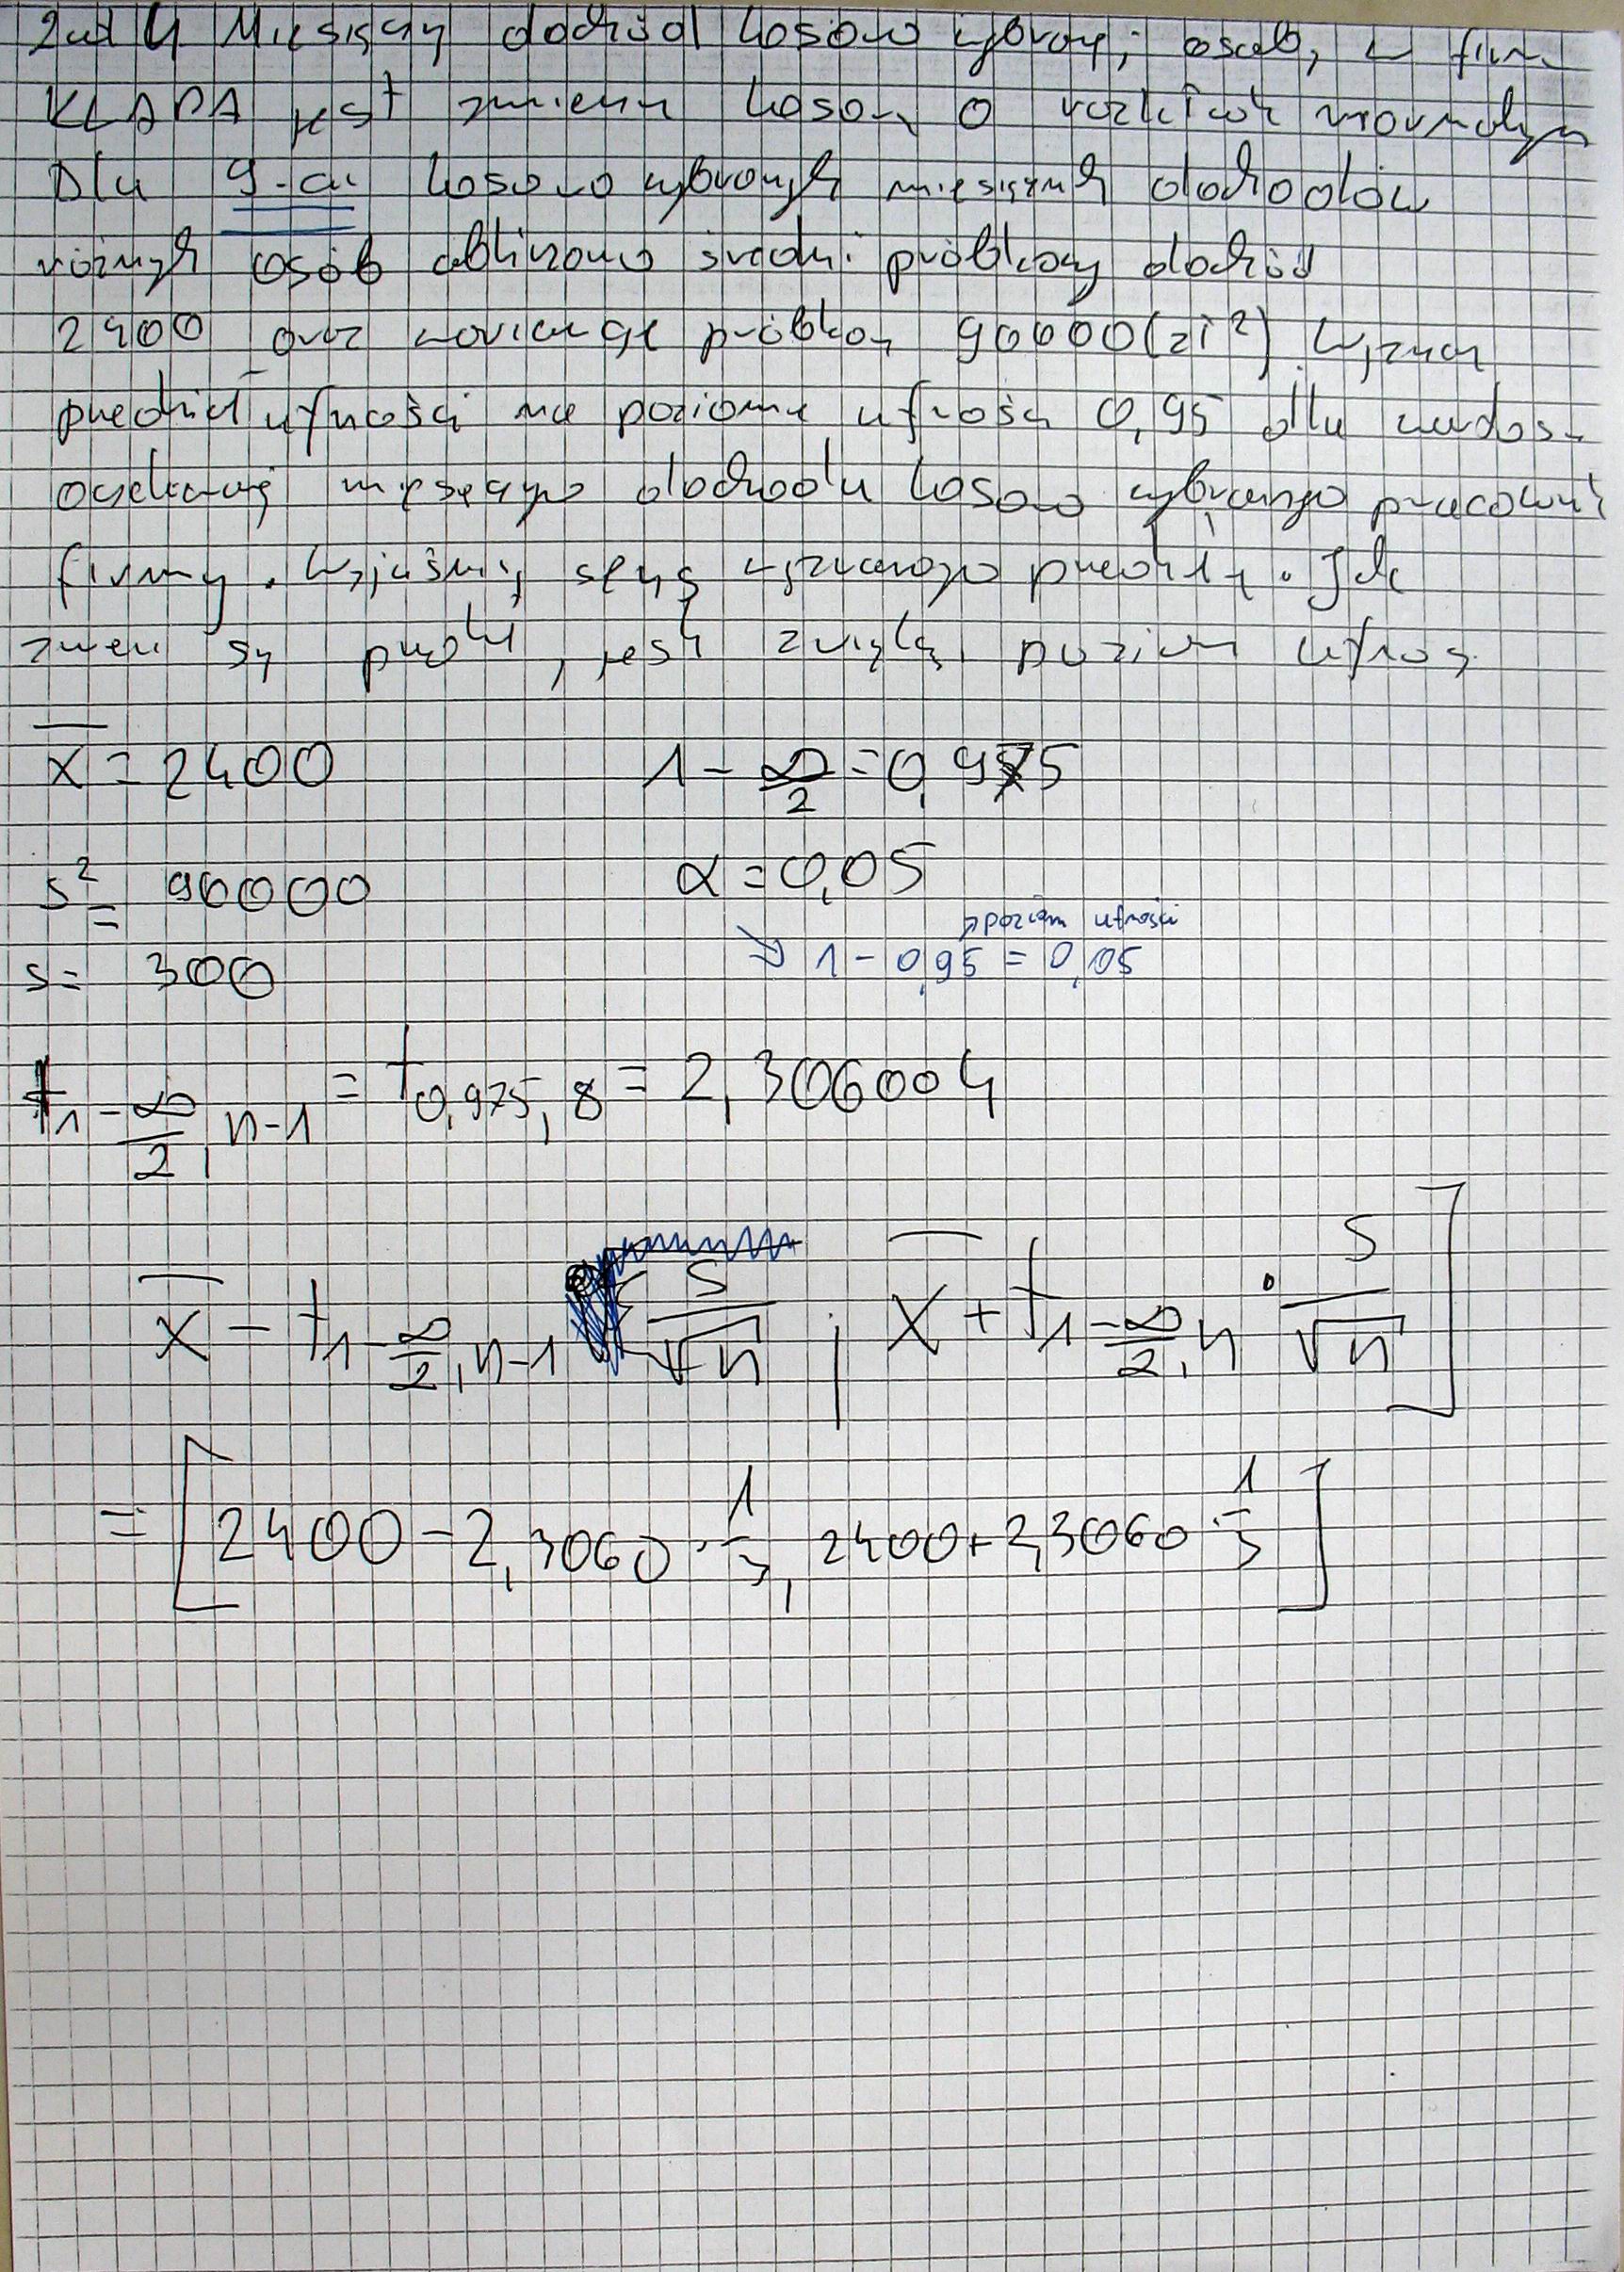 Zad 4 Miesięczny dochód losowo wybranej osoby w firm
KLAPA jest zmienn losową o rozkład normalnym
Dla 9-ciu losowo wybranych miesięcznych dochodów
różnych osób obliczono średni próbkowy dochód
2400 oraz wariancję próbkową 90000(zł²). Wyznacz
przedział ufności na poziomie ufności 0,95 dla
oczekiwanej miesięcznego dochodu losowo wybranego pracowni
firmy. Wyjaśnij sens wyznaczonego przedziału. Jak
zmieni się przedział, jeśli zwiększ poziom ufnoś
x̄ = 2400 1 - α/2 = 0,975
s² = 90000 α = 0,05
→ poziom ufności
s = 300 → 1 - 0,95 = 0,05
t₁₋α/2, n-1 = t₀,₉₇₅, ₈ = 2,306004
x̄ - t₁₋α/2, n-1 s/√n ; x̄ + t₁₋α/2, n · s/√n ]
= [2400 - 2,3060 · 1/3, 2400 + 2,3060 · 1/3]